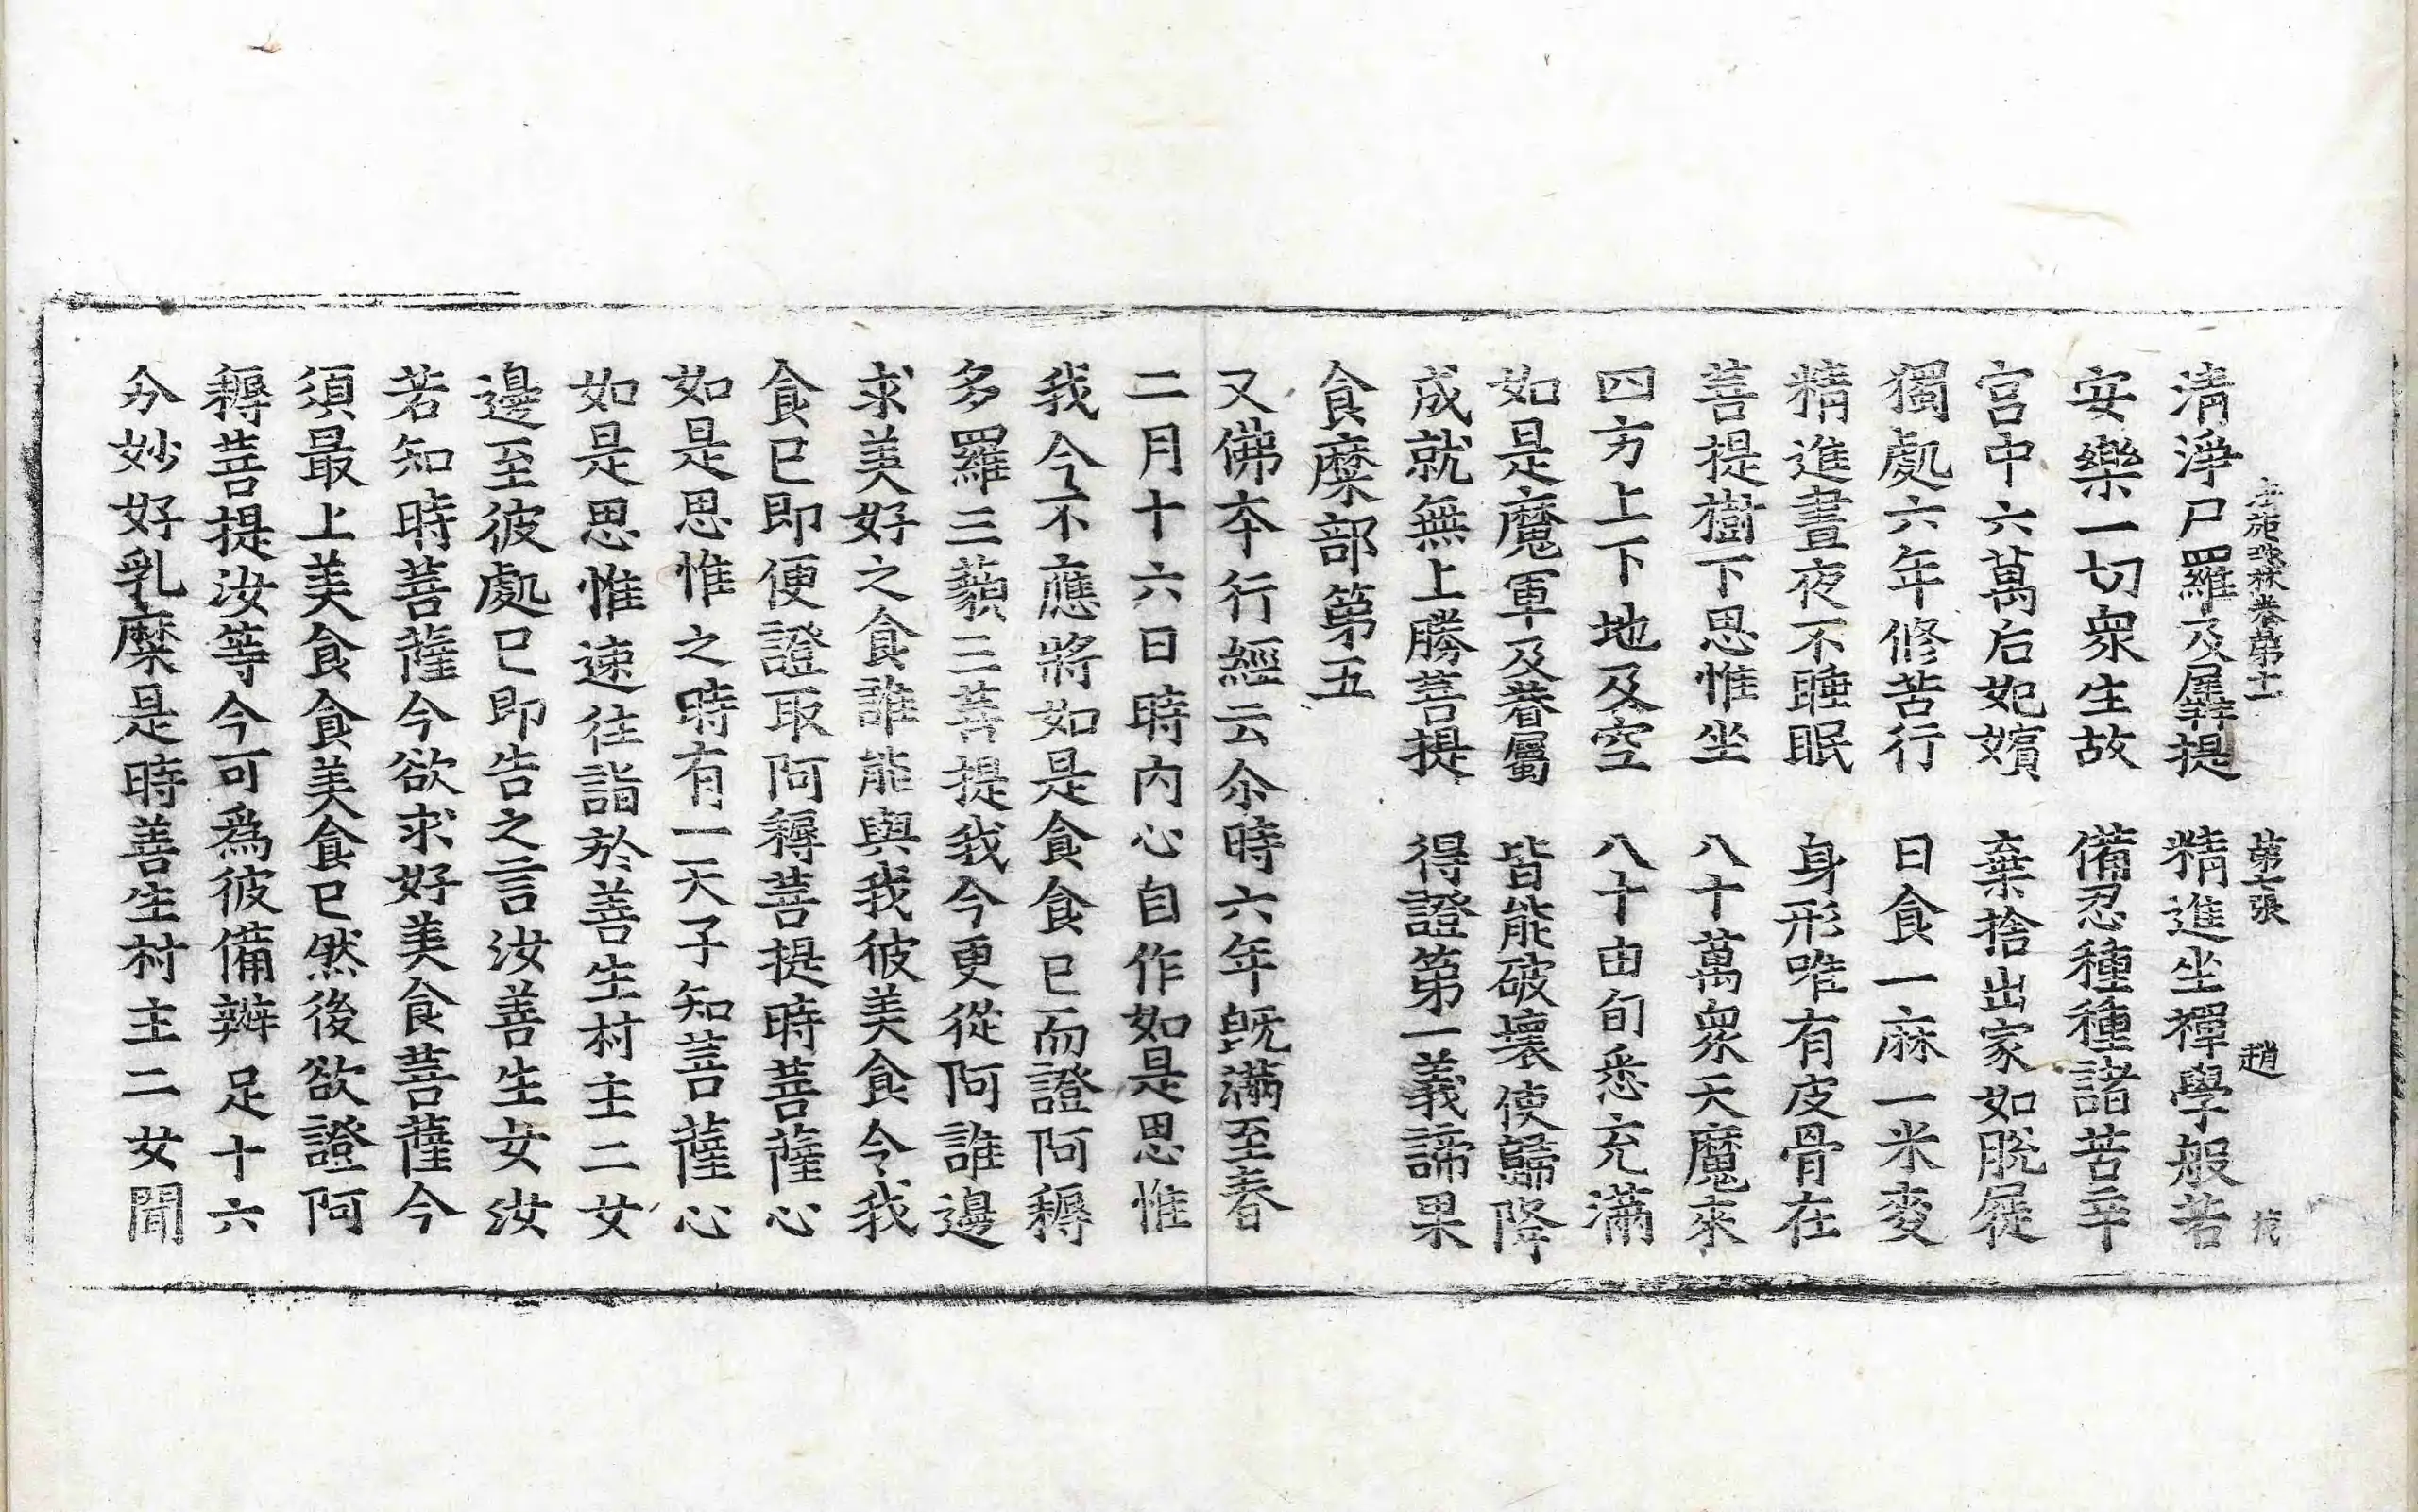 法苑珠林卷第十一 第七張 趙
清淨尸羅及羼提 精進坐禪學般若
安樂一切衆生故 備忍種種諸苦辛
宮中六萬后妃嬪 棄捨出家如脫屣
獨處六年修苦行 日食一麻一米麥
精進晝夜不睡眠 身形唯有皮骨在
菩提樹下思惟坐 八十萬衆天魔來
四方上下地及空 八十由旬悉充滿
如是魔軍及眷屬 皆能破壞使歸降
成就無上勝菩提 得證第一義諦果
食糜部第五
又佛夲行經云尒時六年旣滿至春
二月十六日時內心自作如是思惟
我今不應將如是食食已而證阿耨
多羅三藐三菩提我今更從阿誰邊
求美好之食誰能與我彼美食令我
食已即便證取阿耨菩提時菩薩心
如是思惟之時有一天子知菩薩心
如是思惟速往詣於善生村主二女
邊至彼處已即告之言汝善生女汝
若知時菩薩今欲求好美食菩薩今
須最上美食食美食已然後欲證阿
耨菩提汝等今可爲彼備辦足十六
分妙好乳糜是時善生村主二女聞